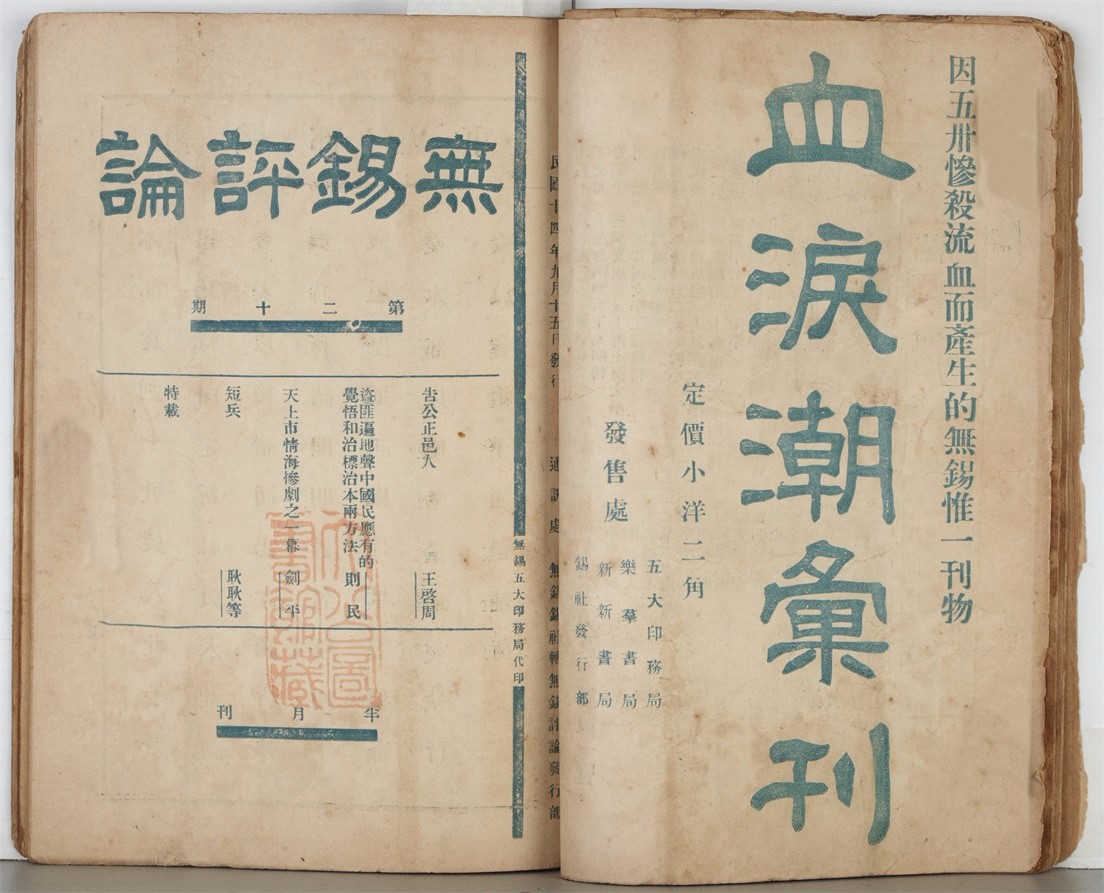 因五卅慘殺流血而產生的無錫惟一刊物
血淚潮彙刊
定價小洋二角
發售處
五大印務局
樂羣書局
新新書局
錫社發行部
民國十四年九月十五日發行
通訊處
無錫錫社轉無錫評論發行部
無錫五大印務局代印
無錫評論
第二十期
告公正邑人
王啓周
盜匪遍地聲中國民應有的
覺悟和治標治本兩方法
則民
天上市情海慘劇之一幕
劍平
短兵
耿耿等
特載
半月刊